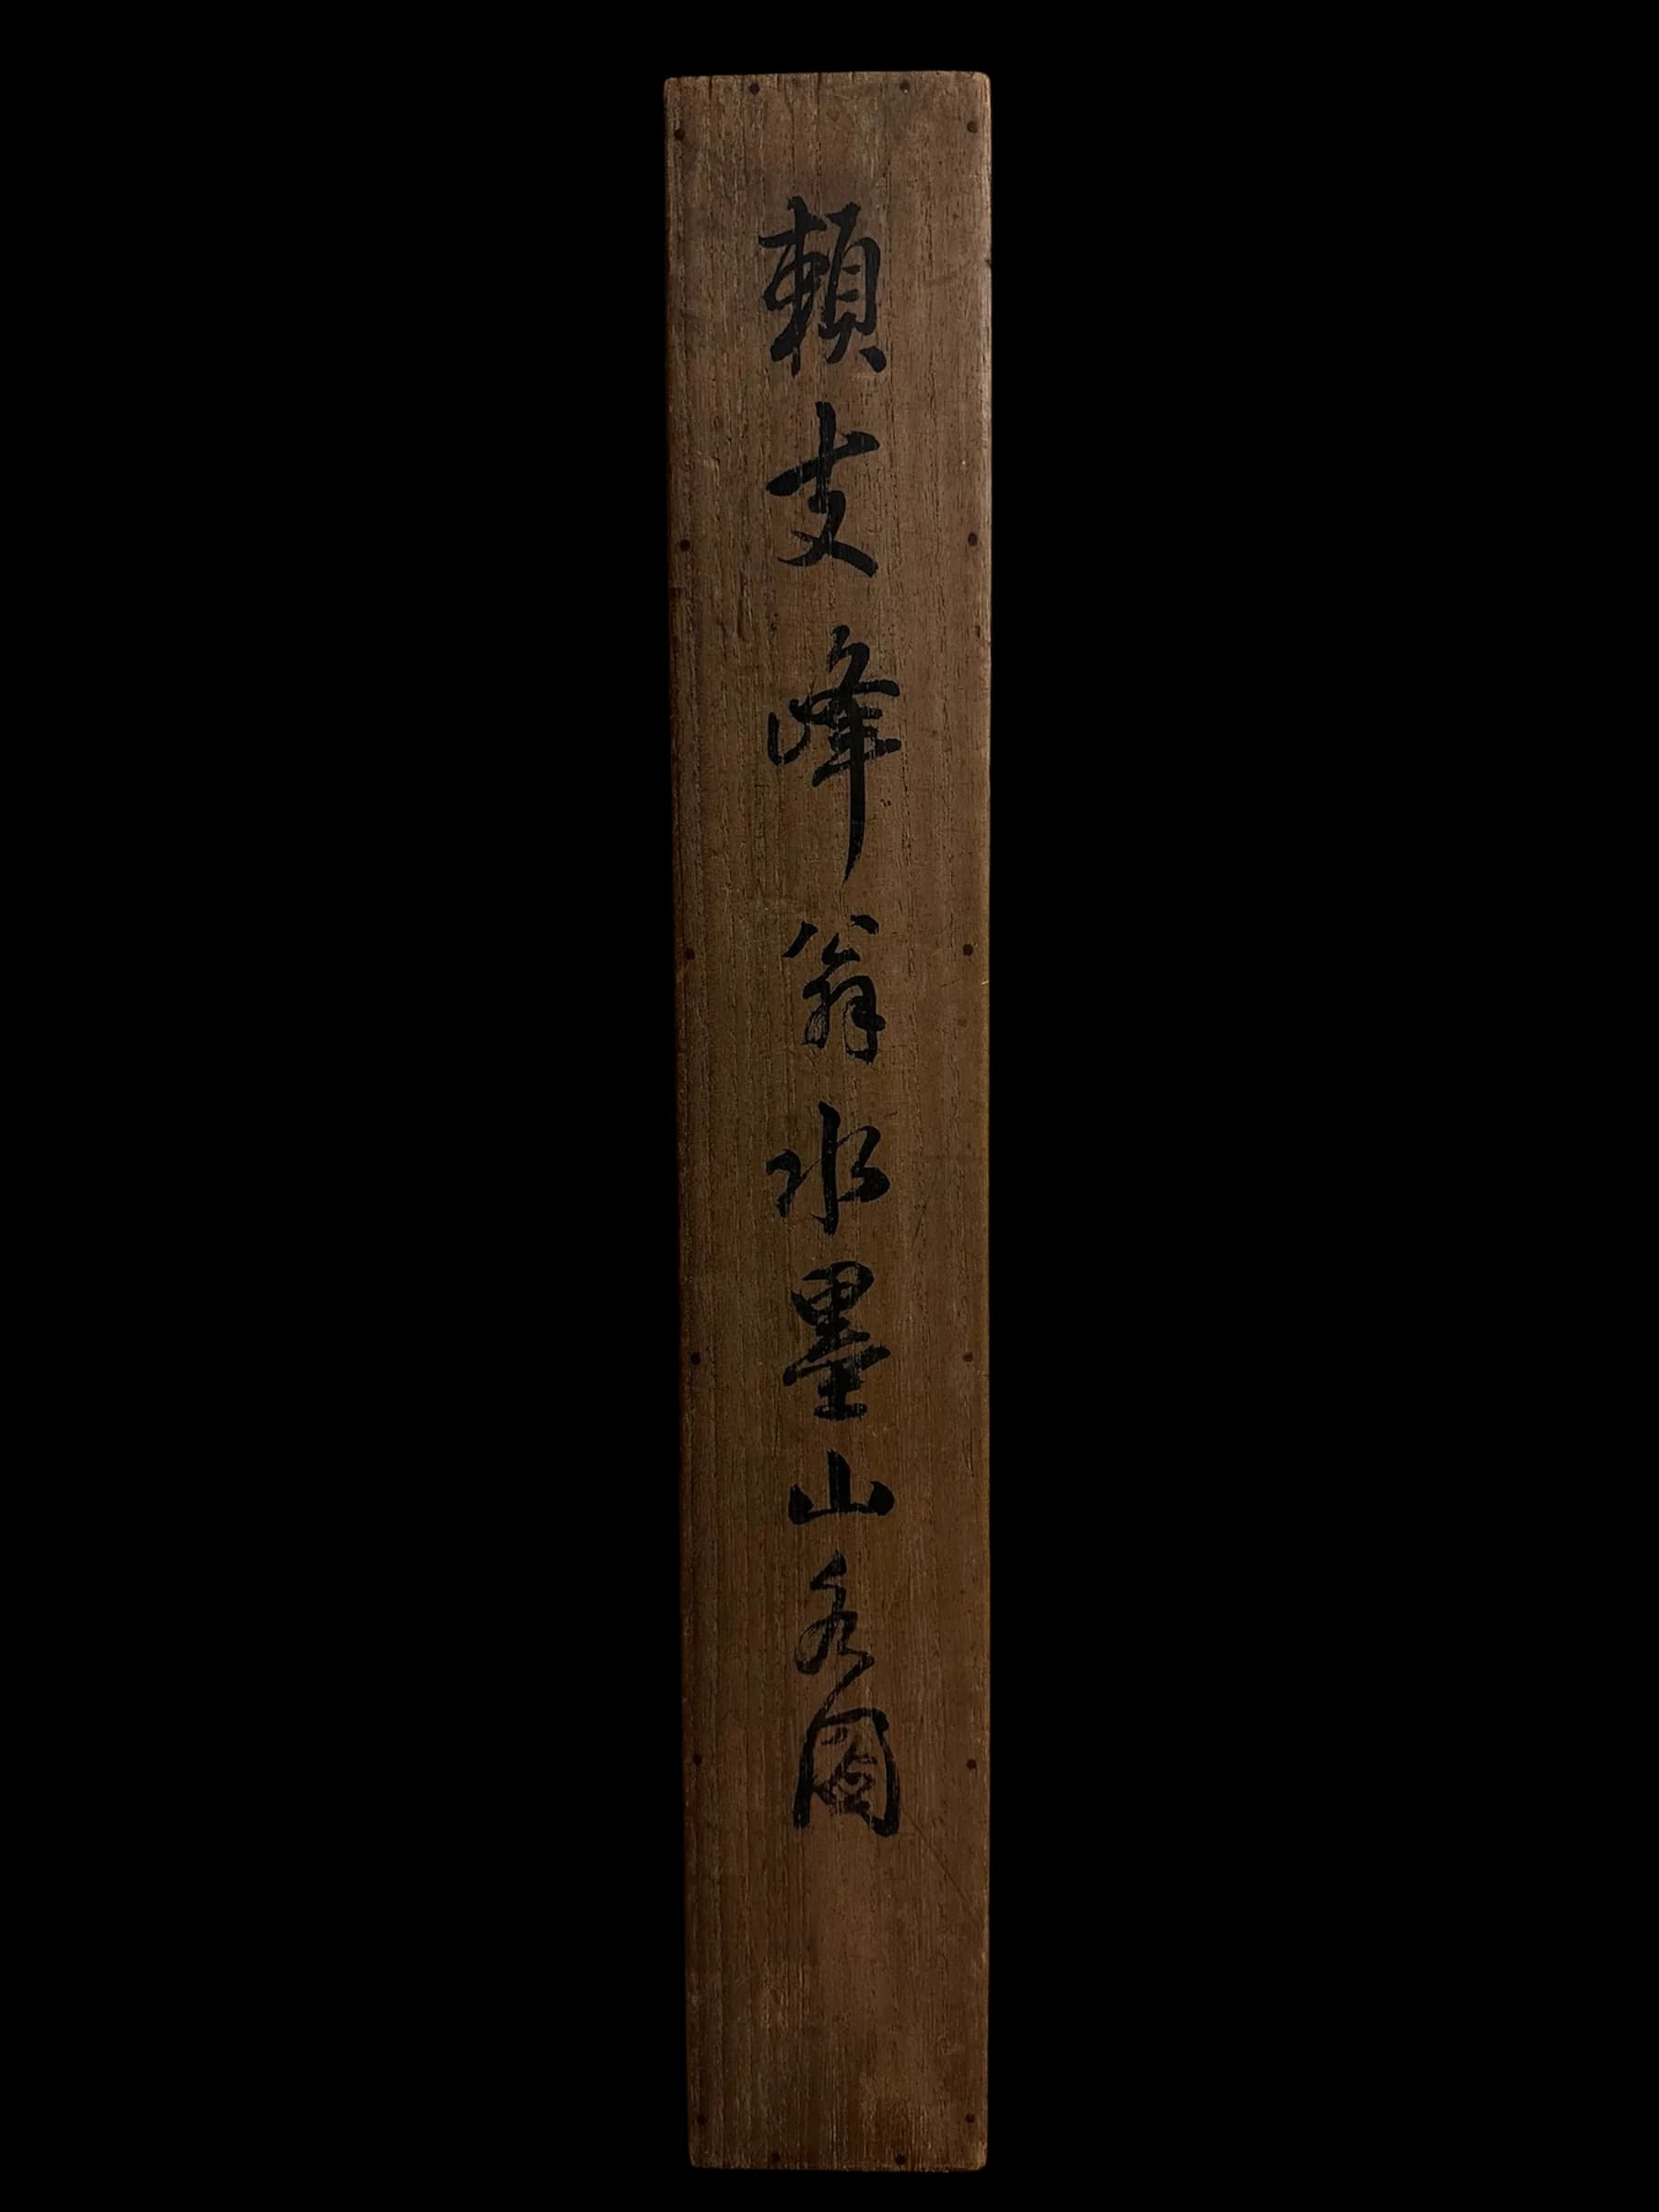 頼支峰翁水墨山水図